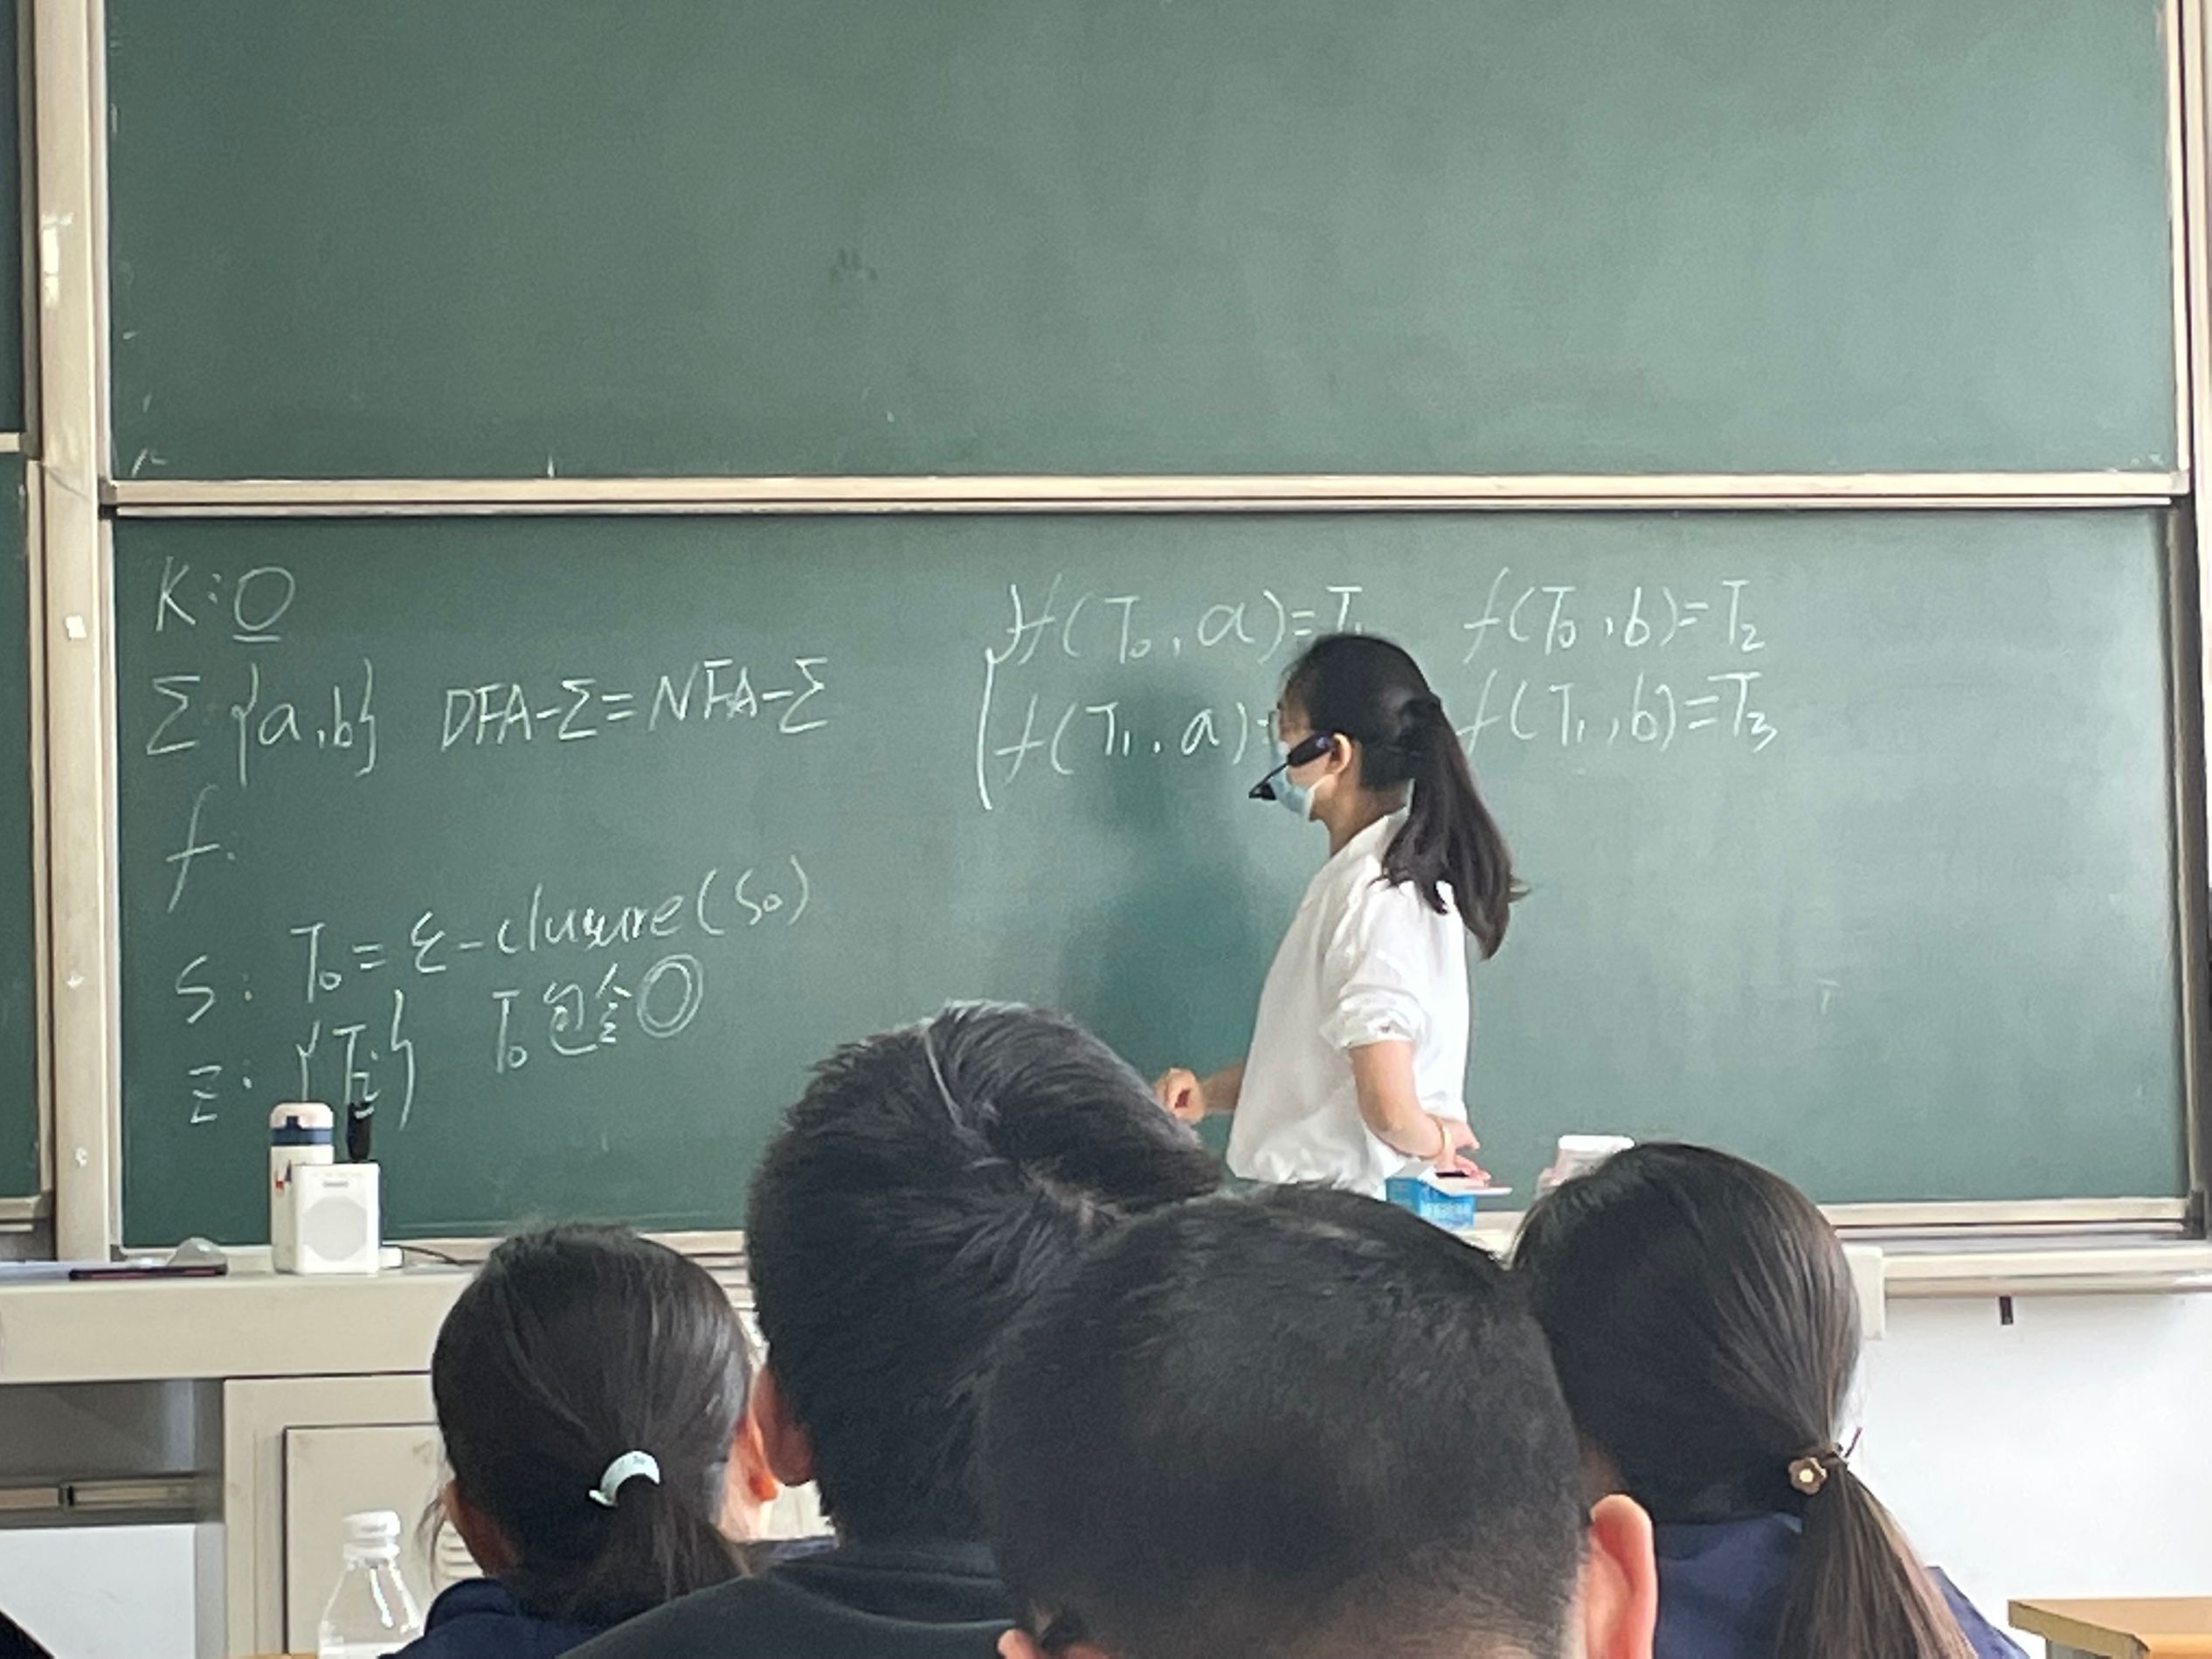 K: O
Σ {a,b} DFA-Σ=NFA-Σ
f:
S: T₀ = ε-closure(S₀)
Z: {Tᵢ} T₀包含◎
f(T₀,a)=T₁ f(T₀,b)=T₂
f(T₁,a)= f(T₁,b)=T₃